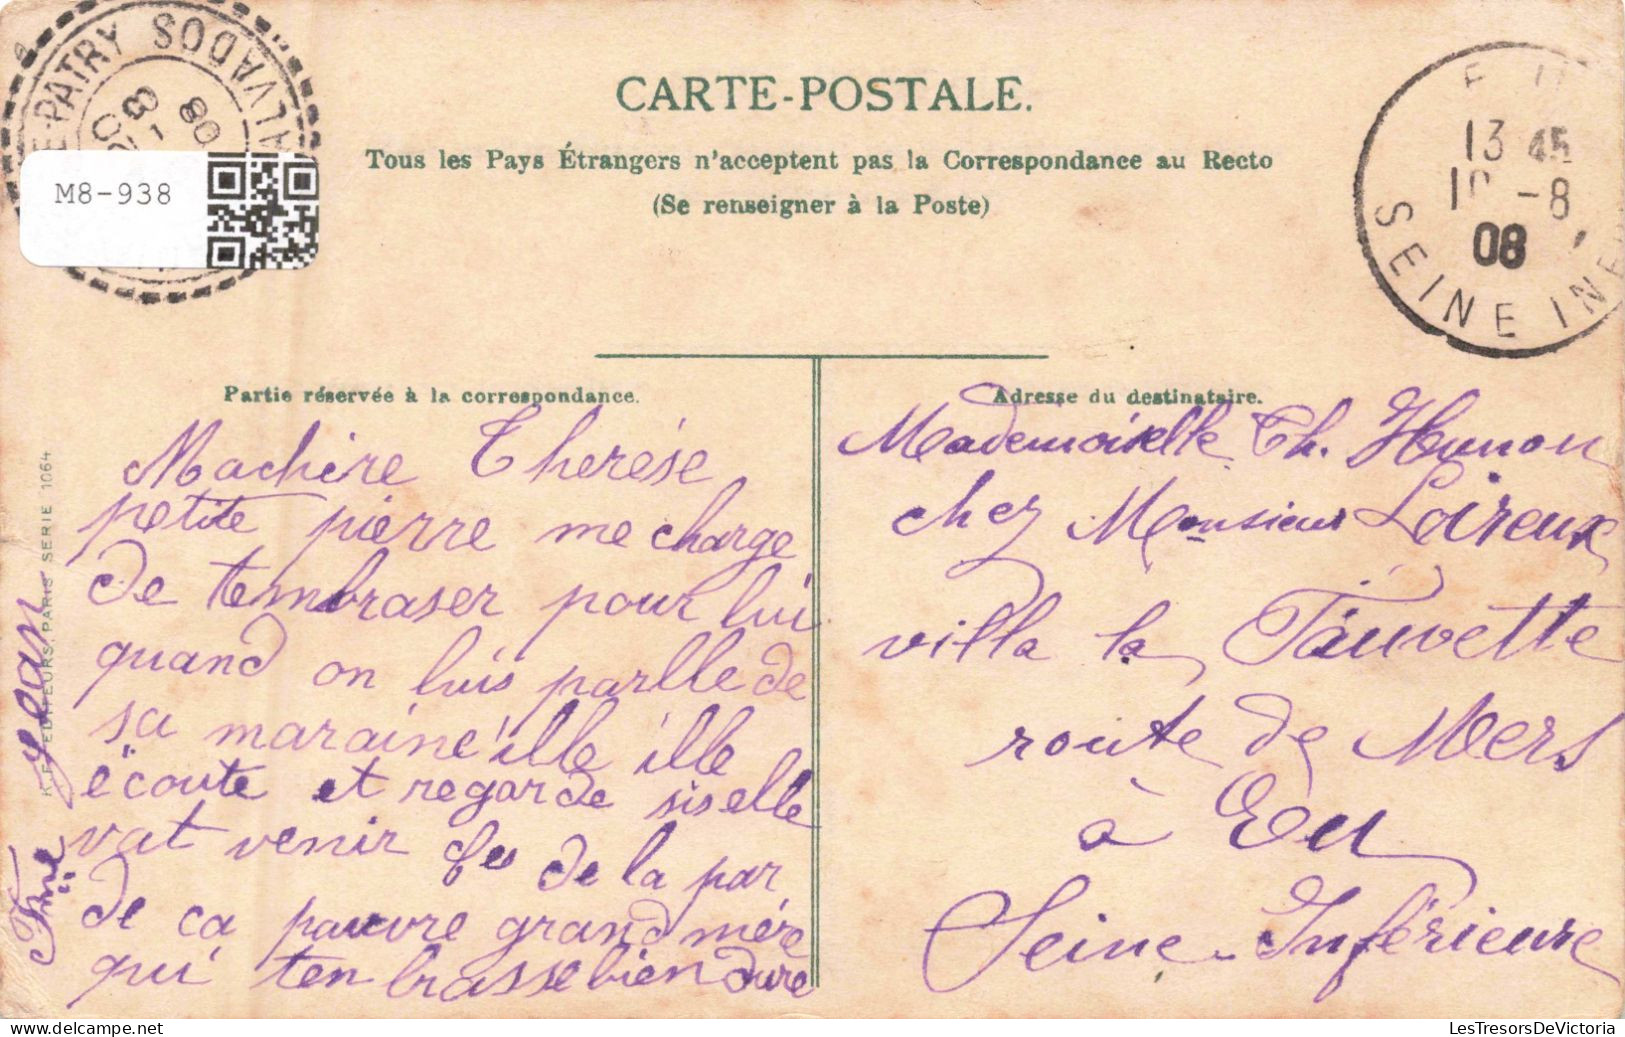 CARTE-POSTALE.
Tous les Pays Étrangers n'acceptent pas la Correspondance au Recto
(Se renseigner à la Poste)
E-PATRY
ALVADOS
8
08
M8-938
13 45
-8
08
SEINE INF
Partie réservée à la correspondance.
Machère Therése
petite pierre me charge
de tembraser pour lui
quand on luis parlle de
sa maraine ille ille
écoute et regarde siselle
vat venir de la par
de ca pauvre grand mère
qui ten brasse bien dure
Fme jean
K.F. EDITEURS, PARIS SERIE 1064
Adresse du destinataire.
Mademoiselle Th. Hunon
chez Monsieur Loireux
villa la Fauvette
route de Mers
à Eu
Seine-Inférieure
LesTresorsDeVictoria